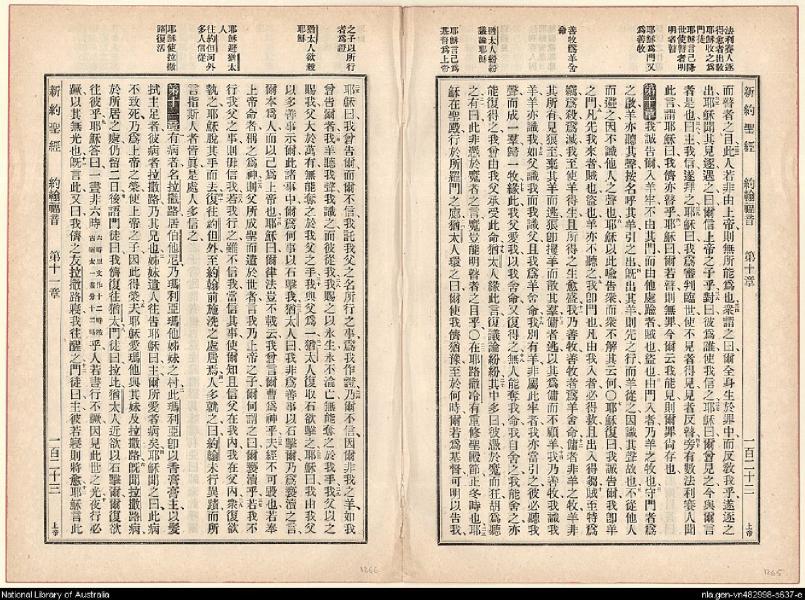 法利賽人逐
得愈者出教
耶穌收之爲
門徒
耶穌言己降
世使瞽者明
明者瞽
耶穌爲門又
爲善牧
善牧爲羊舍
命
猶太人紛紛
議論耶穌
耶穌言己爲
基督爲上帝
新約聖經 約翰福音 第十章 一百二十二 上帝
而瞽者之目此人若非由上帝則無所能爲也衆謂之曰爾全身生於罪中而反敎我乎遂逐之
出耶穌聞其見逐遇之曰爾信上帝之子乎對曰彼爲誰使我信之耶穌曰爾曾見之今與爾言
者是也曰主我信遂拜之耶穌曰我爲審判臨世使不見者得見見者反瞽旁有數法利賽人聞
此言謂耶穌曰我儕亦瞽乎耶穌曰爾若瞽則無罪今爾云我能見則爾罪尙存也
第十章 我誠告爾入羊牢不由其門而由他處踰者賊也盜也由門入者乃羊之牧也守門者爲
之啟羊亦聽其聲按名呼其羊引之出旣出其羊則先之行而羊從之因識其聲故也不從他人
而避之因不識他人之聲也耶穌以此喻告衆而衆不解其云何〇耶穌復曰我誠告爾我卽羊
之門凡先我來者賊也盜也羊亦不聽之我卽門也凡由我入者必得救且出入得芻賊至特爲
竊爲殺爲滅我至使羊得生且所得之生愈盛我乃善牧善牧者爲羊舍命傭者非羊之牧羊非
其所有見狼至棄其羊而逃狼卽攫羊而散其羣傭者逃以其爲傭而不顧羊我乃善牧我識我
羊羊亦識我如父識我而我識父且我爲羊舍命我別有羊非屬此牢者我亦當引之彼必聽我
聲而成一羣歸一牧緣此我父愛我以我舍命又復得之無人能奪我命我自舍之我能舍之亦
能復得之我曾由我父承受此命猶太人緣此言復議論紛紛其中多曰彼憑於魔而狂胡爲聽
之有曰此非憑於魔者之言魔豈能明瞽者之目乎〇在耶路撒冷有重修聖殿節正冬時也耶
穌在聖殿行於所羅門之廊猶太人環之曰爾使我儕猶豫至於何時爾若爲基督可明以告我
之子以所行
者爲證
猶太人欲殺
耶穌
耶穌避猶太
人
往約但河外
多人信從
耶穌使拉撒
路復活
耶穌曰我曾告爾而爾不信我託我父之名所行之事爲我作證乃爾不信因爾非我之羊如我
曾告爾者我羊聽我聲我識之而彼從我我賜之以永生永不淪亡無能奪之於我手我父以之
賜我父大於萬有無能奪之於我父之手我與父爲一猶太人復取石欲擊之耶穌曰我由我父
以多善事示爾此諸事中爾爲何事以石擊我猶太人曰我非爲善事以石擊爾乃爲褻瀆之言
爾本爲人而以己爲上帝也耶穌曰爾律法豈不載云我曾言爾曹爲神乎夫經不可毀也若奉
上帝命者稱之爲神則父所成聖而遣於世者言我乃上帝之子爾何謂之曰爾褻瀆乎若我不
行我父之事則毋信我若我行之雖不信我當信其事使爾知且信父在我內我在父內衆復欲
執之耶穌脫其手而去復往約但外至約翰前施洗之處居焉人多就之曰約翰未行異蹟而所
言指斯人者皆眞是處人多信之
第十一章 有病者名拉撒路居伯他尼乃瑪利亞瑪他姊妹之村此瑪利亞卽以香膏膏主以髮
拭主足者彼病者拉撒路乃其兄也姊妹遣人往告耶穌曰主爾所愛者病矣耶穌聞之曰此病
不致死乃爲上帝之榮使上帝之子因此得榮夫耶穌愛瑪他與其妹及拉撒路旣聞拉撒路病
於所居之處仍留二日後謂門徒曰我儕復往猶太門徒曰拉比猶太人近欲以石擊爾爾復欲
往彼乎耶穌答曰一晝非六時乎人若晝行不蹶因見此世之光夜行必
蹶以其無光也旣言此又曰我儕之友拉撒路寢我往醒之門徒曰主彼若寢則將愈耶穌言此
新約聖經 約翰福音 第十一章 一百二十三 上帝
1266
1265
National Library of Australia
nla.gen-vn482998-s637-e